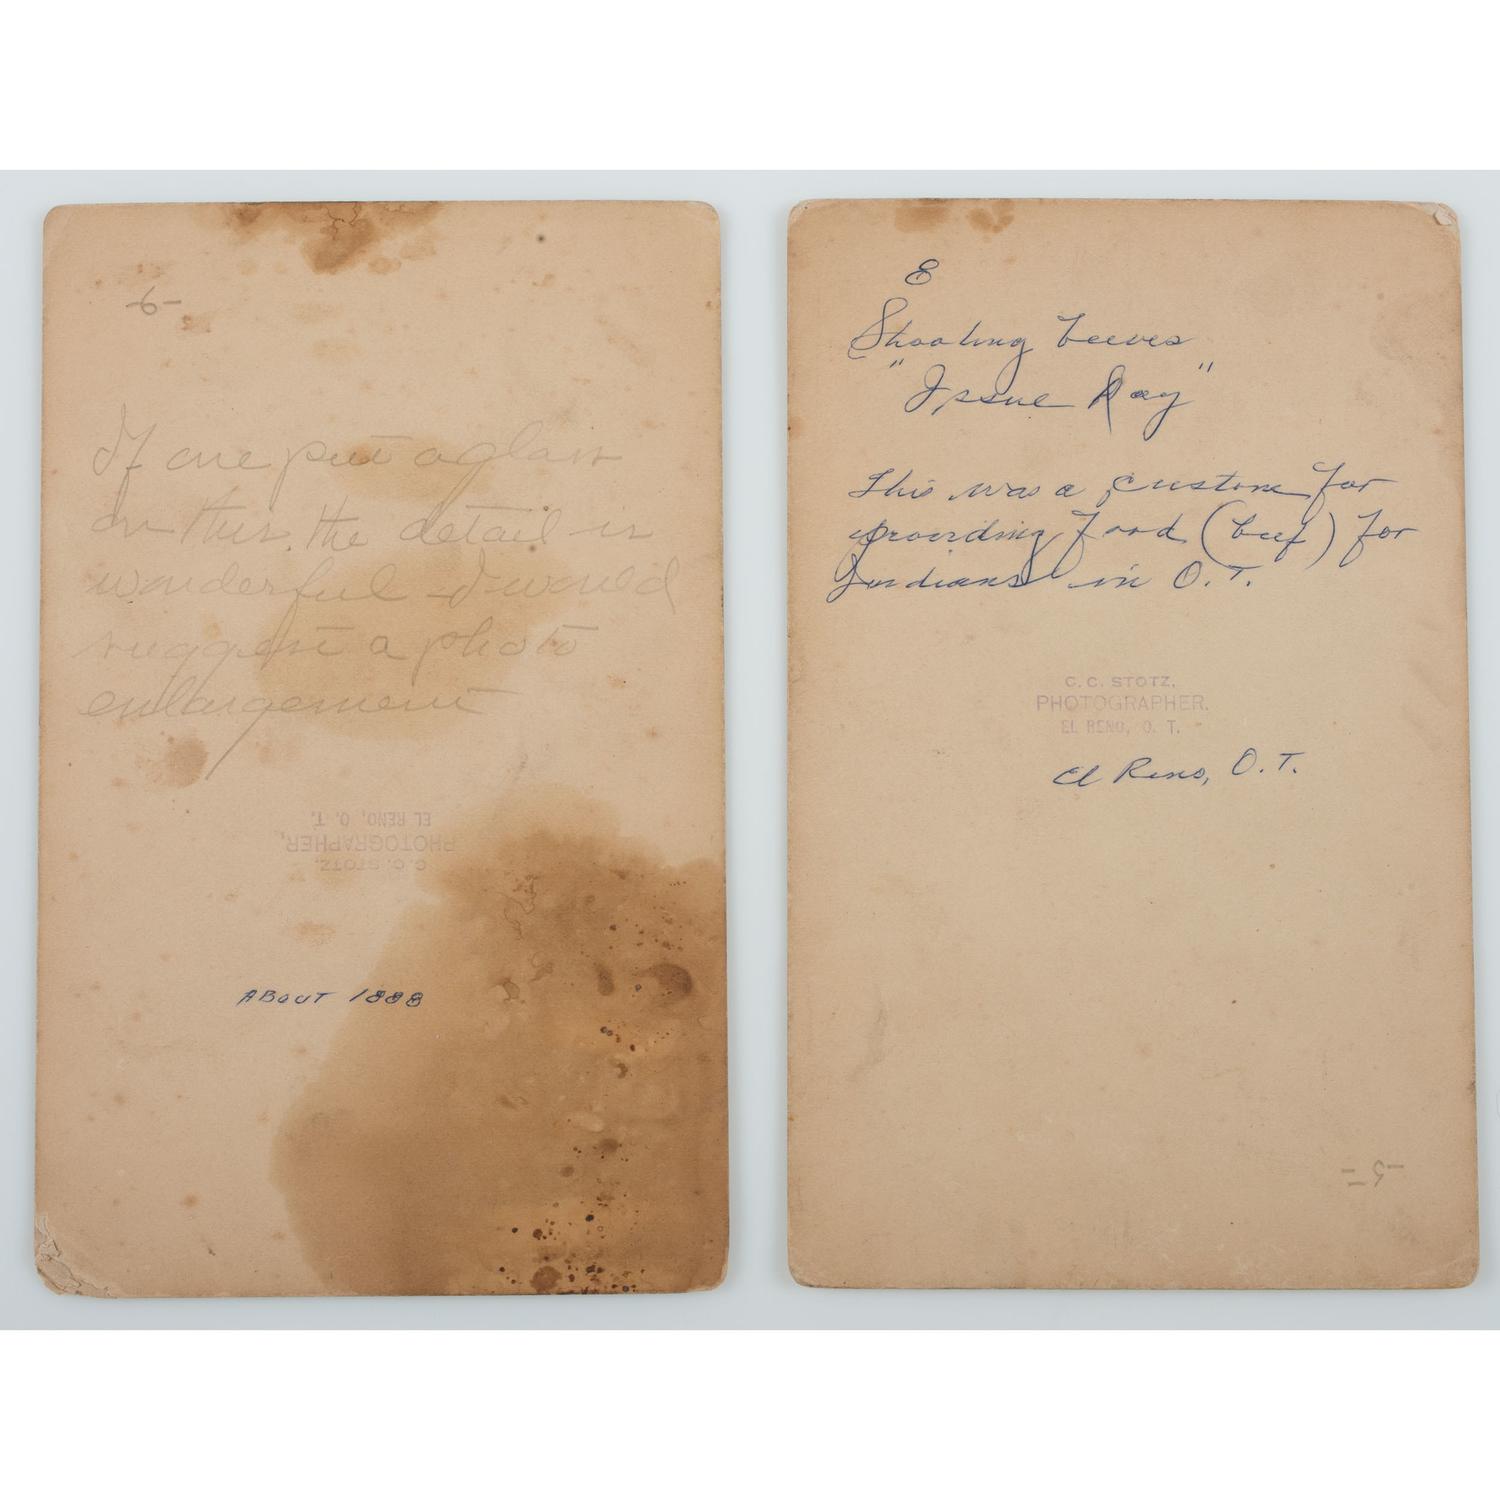 -6-
If one put a glass
on this, the detail is
wonderful I would
suggest a photo
enlargement
C. C. STOTZ,
PHOTOGRAPHER,
EL RENO, O. T.
ABOUT 1888
E
Shooting beeves
"Issue Day"
This was a custom for
providing food (beef) for
Indians in O. T.
C. C. STOTZ,
PHOTOGRAPHER,
EL RENO, O. T.
El Reno, O. T.
-5-